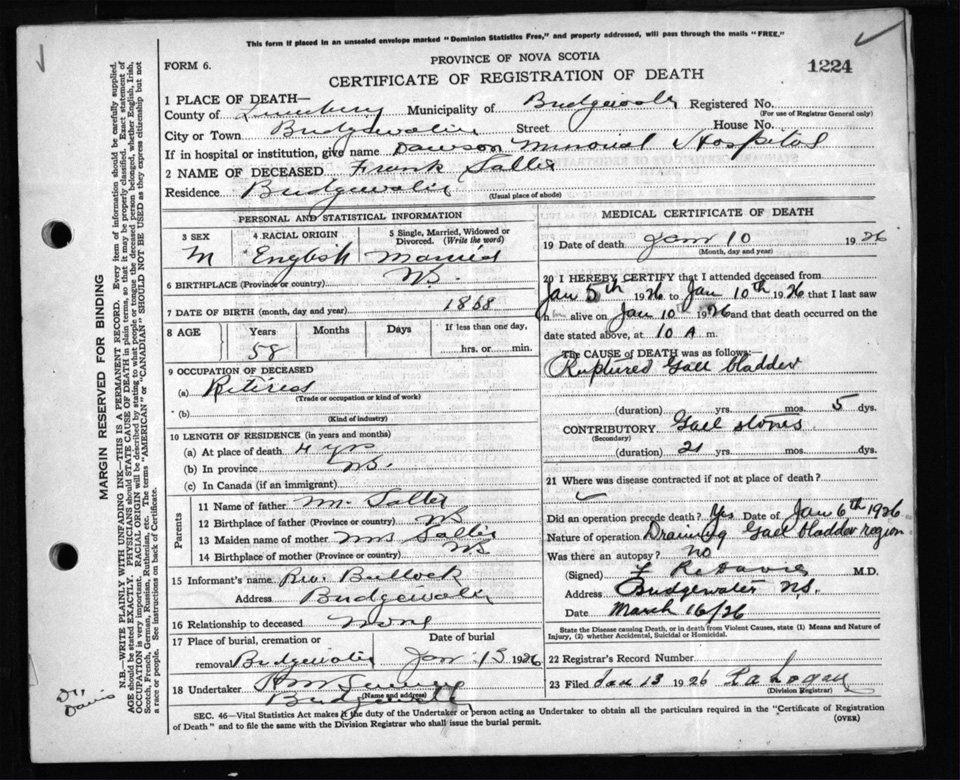 This form if placed in an unsealed envelope marked "Dominion Statistics Free," and properly addressed, will pass through the mails "FREE."
FORM 6.
PROVINCE OF NOVA SCOTIA
CERTIFICATE OF REGISTRATION OF DEATH
1224
1 PLACE OF DEATH—
County of Municipality of Bridgewater Registered No.
(For use of Registrar General only)
City or Town Bridgewater Street House No.
If in hospital or institution, give name Dawson Memorial Hospital
2 NAME OF DECEASED Frank
Residence Bridgewater
(Usual place of abode)
PERSONAL AND STATISTICAL INFORMATION
3 SEX 4 RACIAL ORIGIN 5 Single, Married, Widowed or Divorced. (Write the word)
M English Married
6 BIRTHPLACE (Province or country) NS.
7 DATE OF BIRTH (month, day and year) 1868
8 AGE Years Months Days If less than one day,
58 hrs. or min.
9 OCCUPATION OF DECEASED
(a) Retired
(Trade or occupation or kind of work)
(b)
(Kind of industry)
10 LENGTH OF RESIDENCE (in years and months)
(a) At place of death 4 yrs
(b) In province NS.
(c) In Canada (if an immigrant)
Parents
11 Name of father Mr
12 Birthplace of father (Province or country) NS
13 Maiden name of mother Mrs
14 Birthplace of mother (Province or country) NS
15 Informant's name Rev. Bullock
Address Bridgewater
16 Relationship to deceased None
17 Place of burial, cremation or removal Bridgewater Date of burial Jan 13 1926
18 Undertaker
(Name and address)
MEDICAL CERTIFICATE OF DEATH
19 Date of death Jan 10 1926
(Month, day and year)
20 I HEREBY CERTIFY that I attended deceased from
Jan 5th 1926 to Jan 10th 1926 that I last saw
h alive on Jan 10 1926 and that death occurred on the
date stated above, at 10 A m.
The CAUSE OF DEATH was as follows:
Ruptured Gall bladder
(duration) yrs. mos. 5 dys.
CONTRIBUTORY. Gall stones
(Secondary)
(duration) 21 yrs. mos. dys.
21 Where was disease contracted if not at place of death?
Did an operation precede death? Yes Date of Jan 6th 1926
Nature of operation Draining Gall bladder region
Was there an autopsy? No
(Signed) M.D.
Address Bridgewater NS.
Date March 16/26
State the Disease causing Death, or in death from Violent Causes, state (1) Means and Nature of Injury, (2) whether Accidental, Suicidal or Homicidal.
22 Registrar's Record Number
23 Filed Jan 13 1926
(Division Registrar)
SEC. 46—Vital Statistics Act makes it the duty of the Undertaker or person acting as Undertaker to obtain all the particulars required in the "Certificate of Registration
of Death" and to file the same with the Division Registrar who shall issue the burial permit.
(OVER)
MARGIN RESERVED FOR BINDING
N.B.—WRITE PLAINLY WITH UNFADING INK—THIS IS A PERMANENT RECORD. Every item of information should be carefully supplied.
AGE should be stated EXACTLY. PHYSICIANS should STATE CAUSE OF DEATH in plain terms, so that it may be properly classified. Exact statement of
OCCUPATION is very important. RACIAL ORIGIN will be described by stating to what people or tongue the deceased person belonged, whether English, Irish,
Scotch, French, German, Russian, Ruthenian, etc. The terms "AMERICAN" or "CANADIAN" SHOULD NOT BE USED as they express citizenship but not
a race or people. See instructions on back of Certificate.
Dr Davis